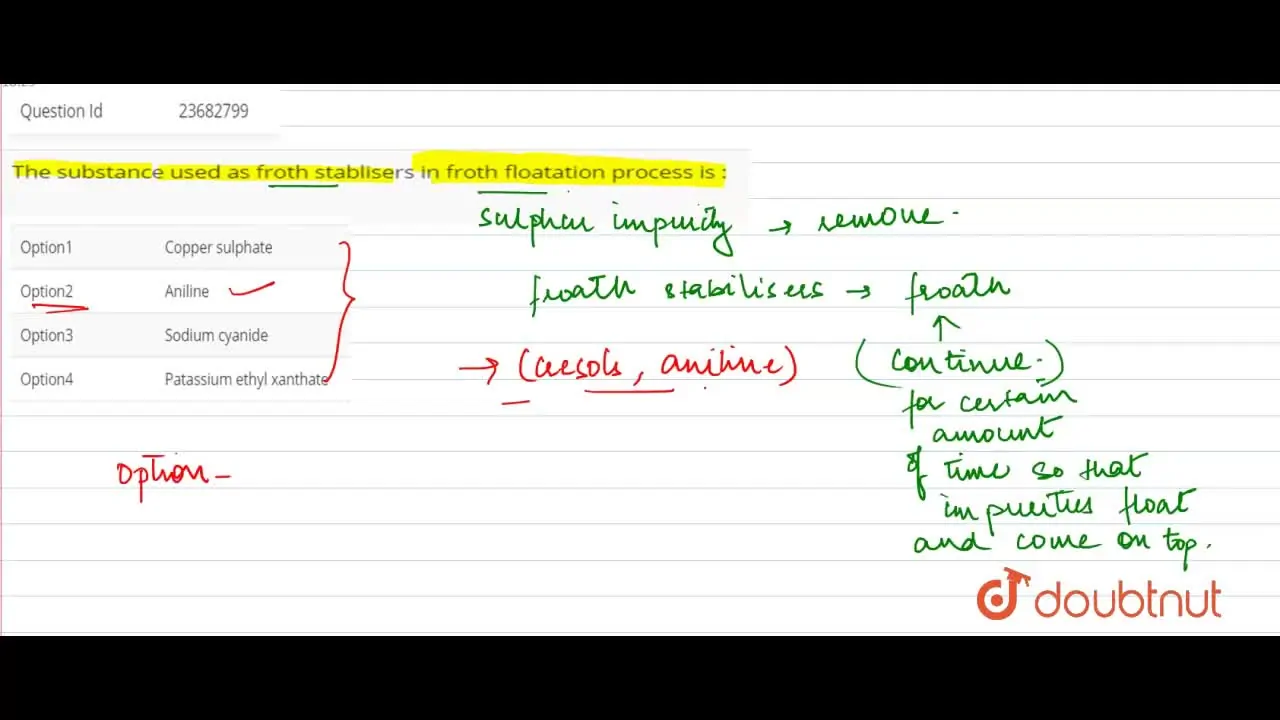 Question Id 23682799
The substance used as froth stablisers in froth floatation process is :
sulphur impurity → remove.
Option1 Copper sulphate
Option2 Aniline
Option3 Sodium cyanide
Option4 Patassium ethyl xanthate
froath stabilisers → froath
→ (cresols, aniline)
(continue.)
for certain
amount
of time so that
impurities float
and come on top.
option -
doubtnut